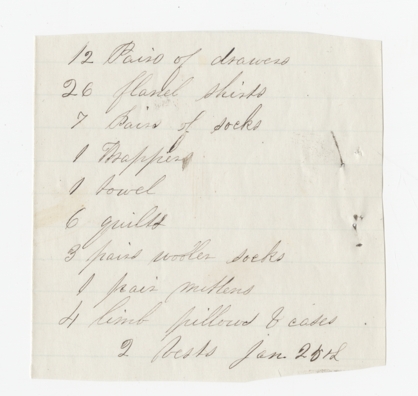 12 Pairs of drawers
26 flanel shirts
7 Pairs of socks
1 Wrappers
1 towel
6 quilts
3 pairs woolen socks
1 pair mittens
4 limb pillows & cases
2 Vests Jan. 25th